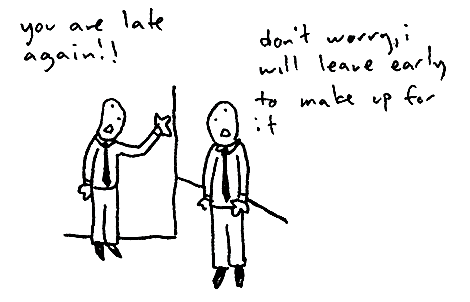 you are late
again!!
don't worry, i
will leave early
to make up for
it